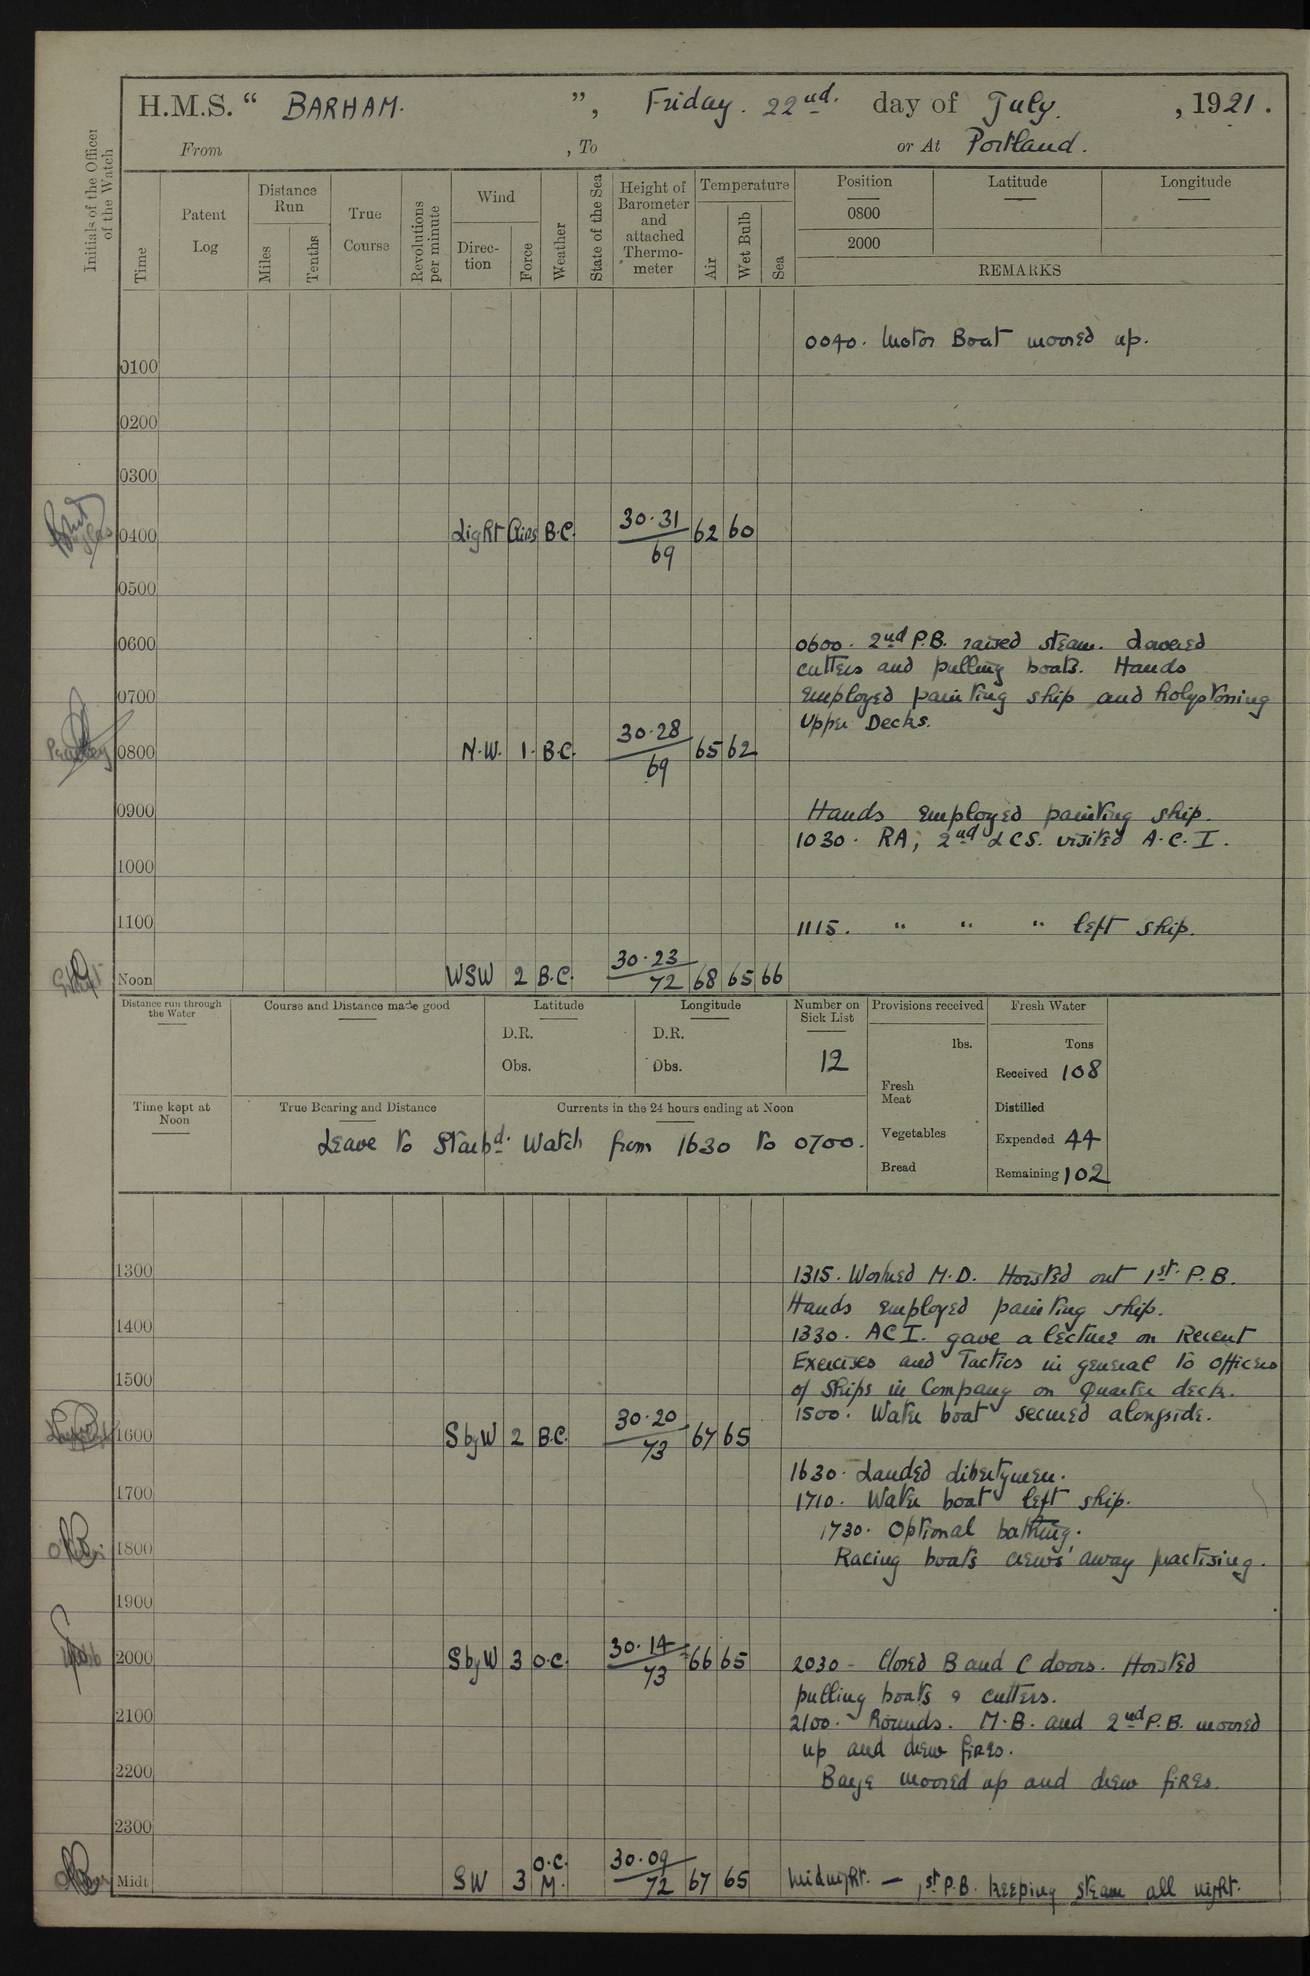 H.M.S. “ BARHAM. ”, Friday. 22nd. day of July. , 1921.
From , To or At Portland.
Initials of the Officer of the Watch
Time
Patent Log
Distance Run
Miles
Tenths
True Course
Revolutions per minute
Wind
Direc-tion
Force
Weather
State of the Sea
Height of Barometer and attached Thermo-meter
Temperature
Air
Wet Bulb
Sea
Position Latitude Longitude
0800
2000
REMARKS
0040. Motor Boat moored up.
0100
0200
0300
0400 Light Airs B.C. 30.31 / 69 62 60
0500
0600 0600. 2nd P.B. raised steam. Lowered
cutters and pulling boats. Hands
0700 employed painting ship and holystoning
Upper Decks.
0800 N.W. 1. B.C. 30.28 / 69 65 62
0900 Hands employed painting ship.
1030. RA, 2nd LCS. visited A.C.I.
1000
1100 1115. " " " left ship.
Noon WSW 2 B.C. 30.23 / 72 68 65 66
Distance run through the Water
Course and Distance made good
Latitude
D.R.
Obs.
Longitude
D.R.
Obs.
Number on Sick List
12
Provisions received
lbs.
Fresh Meat
Vegetables
Bread
Fresh Water
Tons
Received 108
Distilled
Expended 44
Remaining 102
Time kept at Noon
True Bearing and Distance
Currents in the 24 hours ending at Noon
Leave to Starbd. Watch from 1630 to 0700.
1300 1315. Worked M.D. Hoisted out 1st. P.B.
Hands employed painting ship.
1400 1330. ACI. gave a lecture on Recent
Exercises and Tactics in general to officers
1500 of Ships in Company on Quarter deck.
1500. Water boat secured alongside.
1600 S by W 2 B.C. 30.20 / 73 67 65
1630. Landed libertymen.
1700 1710. Water boat left ship.
1730. Optional bathing.
1800 Racing boats crews' away practising.
1900
2000 S by W 3 O.C. 30.14 / 73 66 65 2030 - Closed B and C doors. Hoisted
pulling boats & cutters.
2100 2100. Rounds. M.B. and 2nd P.B. moored
up and drew fires.
2200 Barge moored up and drew fires.
2300
Midt SW 3 O.C. M. 30.09 / 72 67 65 Midnight. — 1st P.B. keeping steam all night.